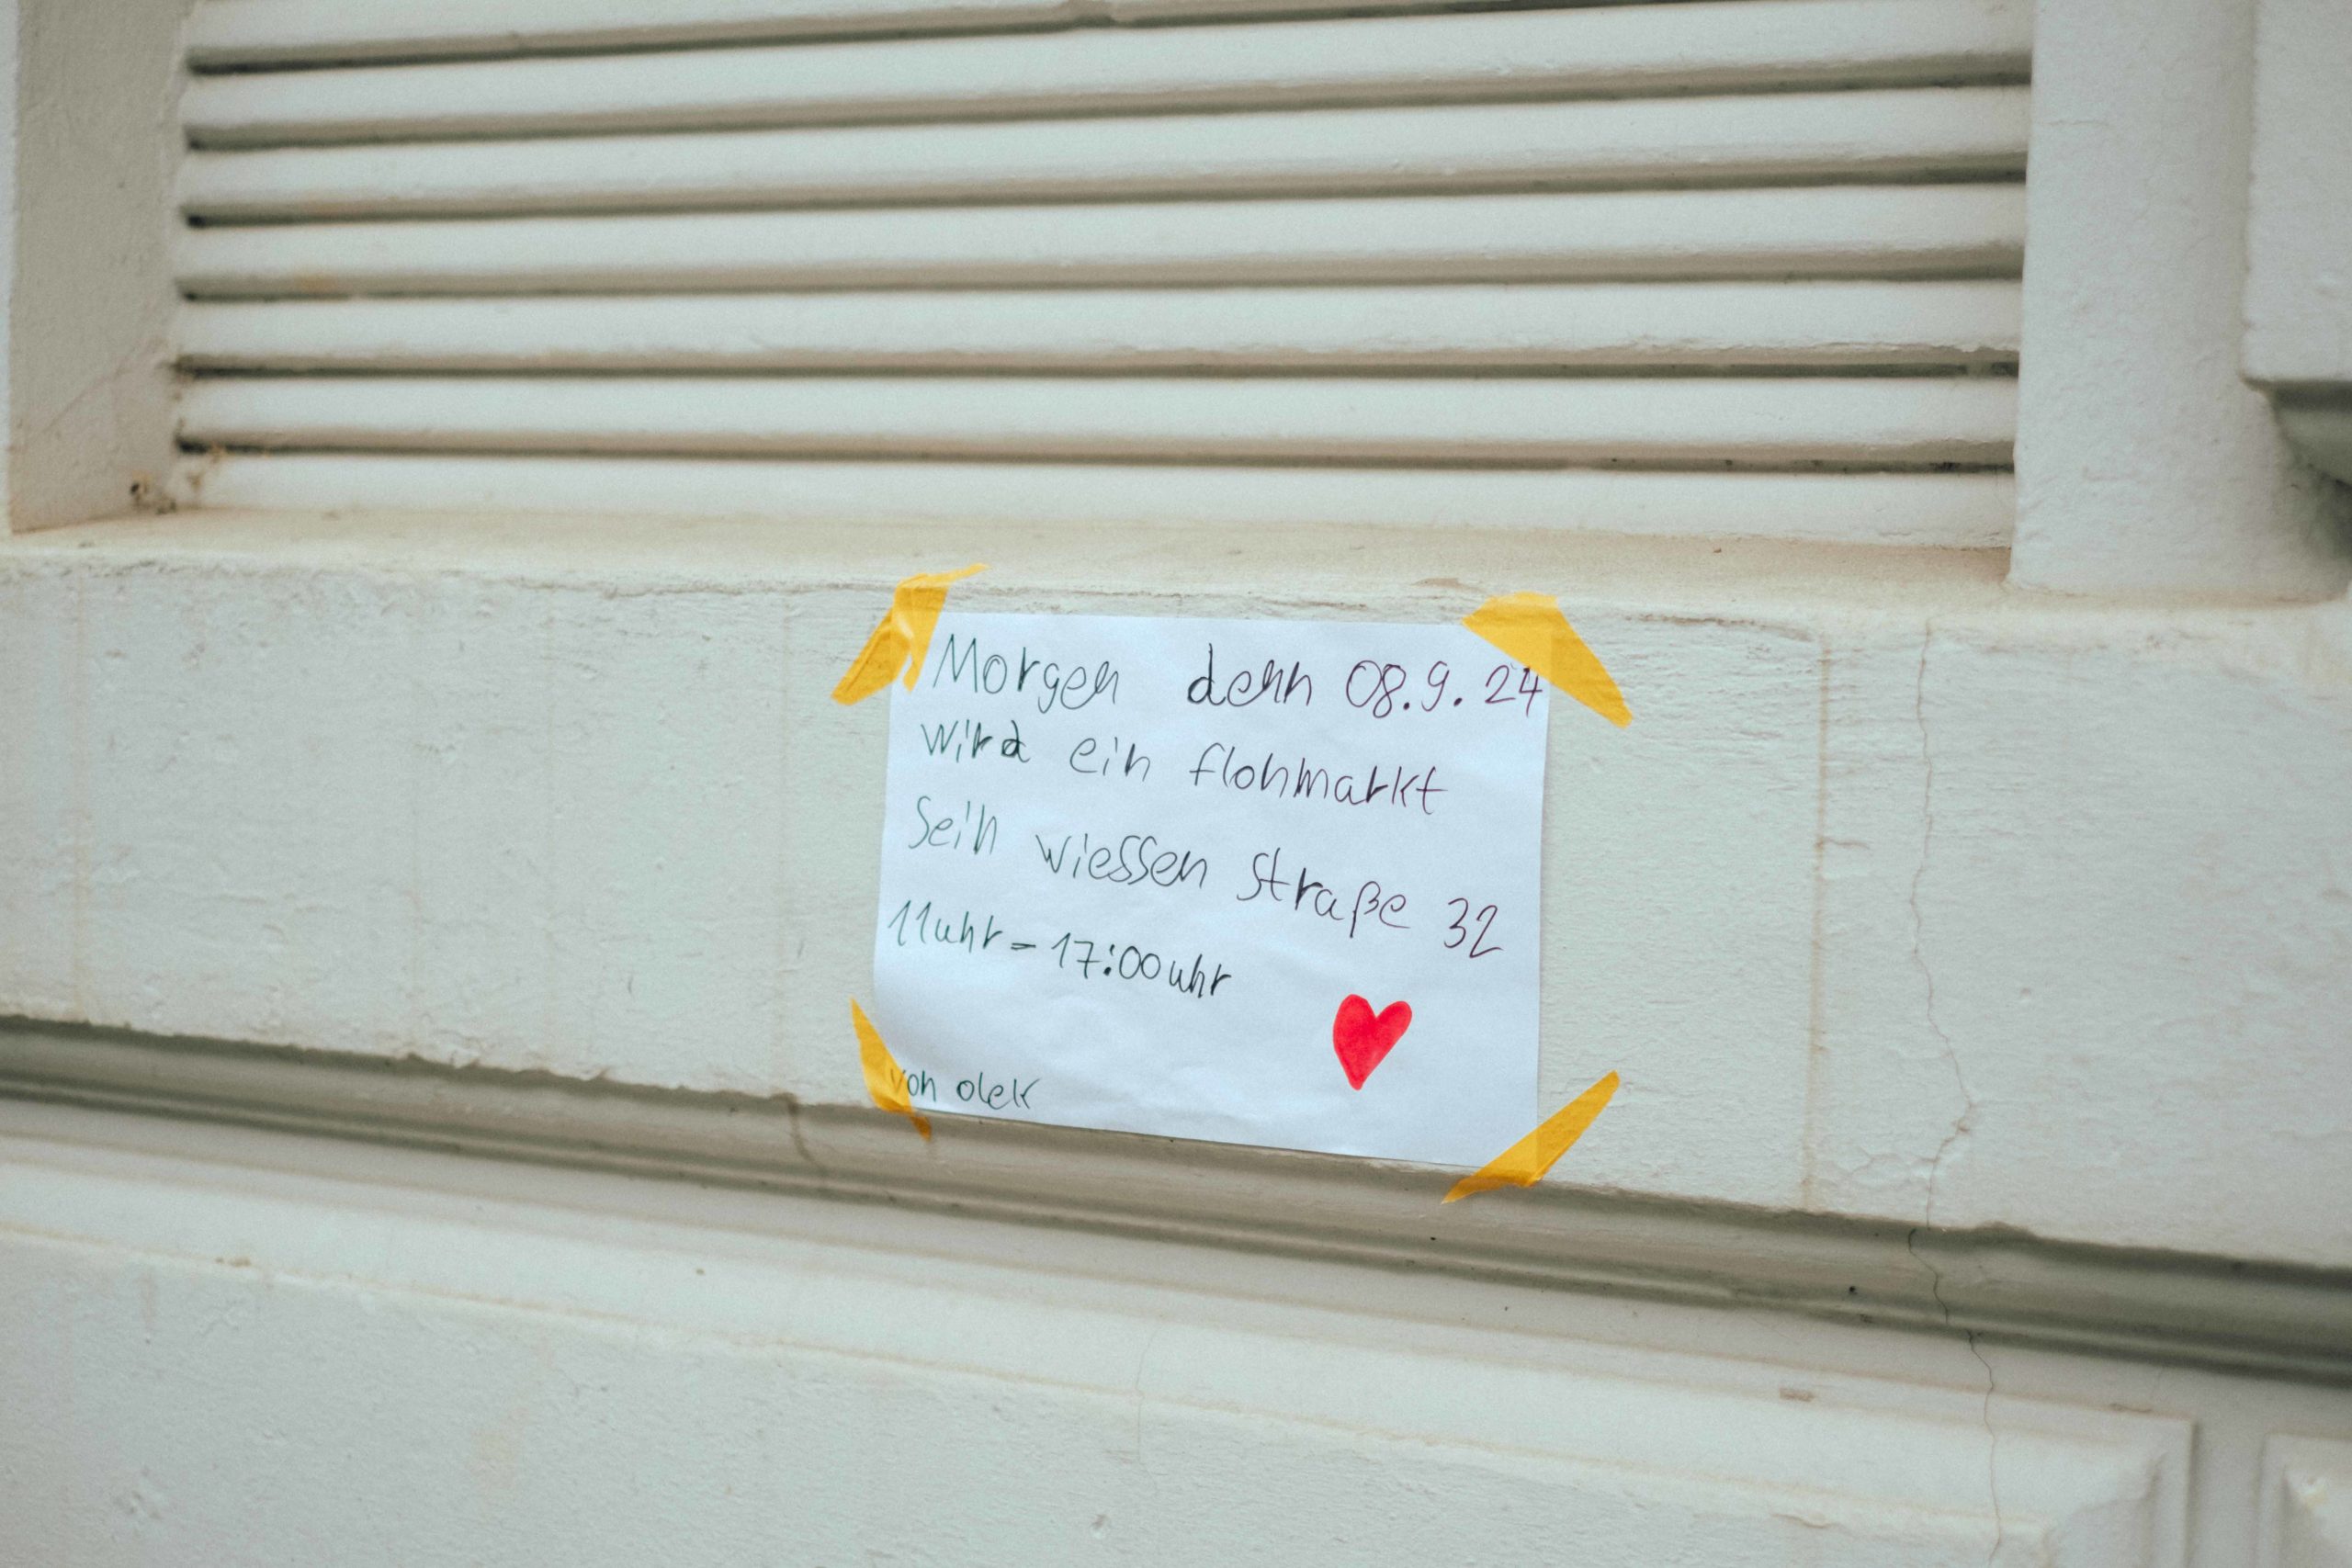 Morgen denn 08.9.24
wird ein flohmarkt
Sein wiessen Straße 32
11uhr - 17:00uhr
von olek